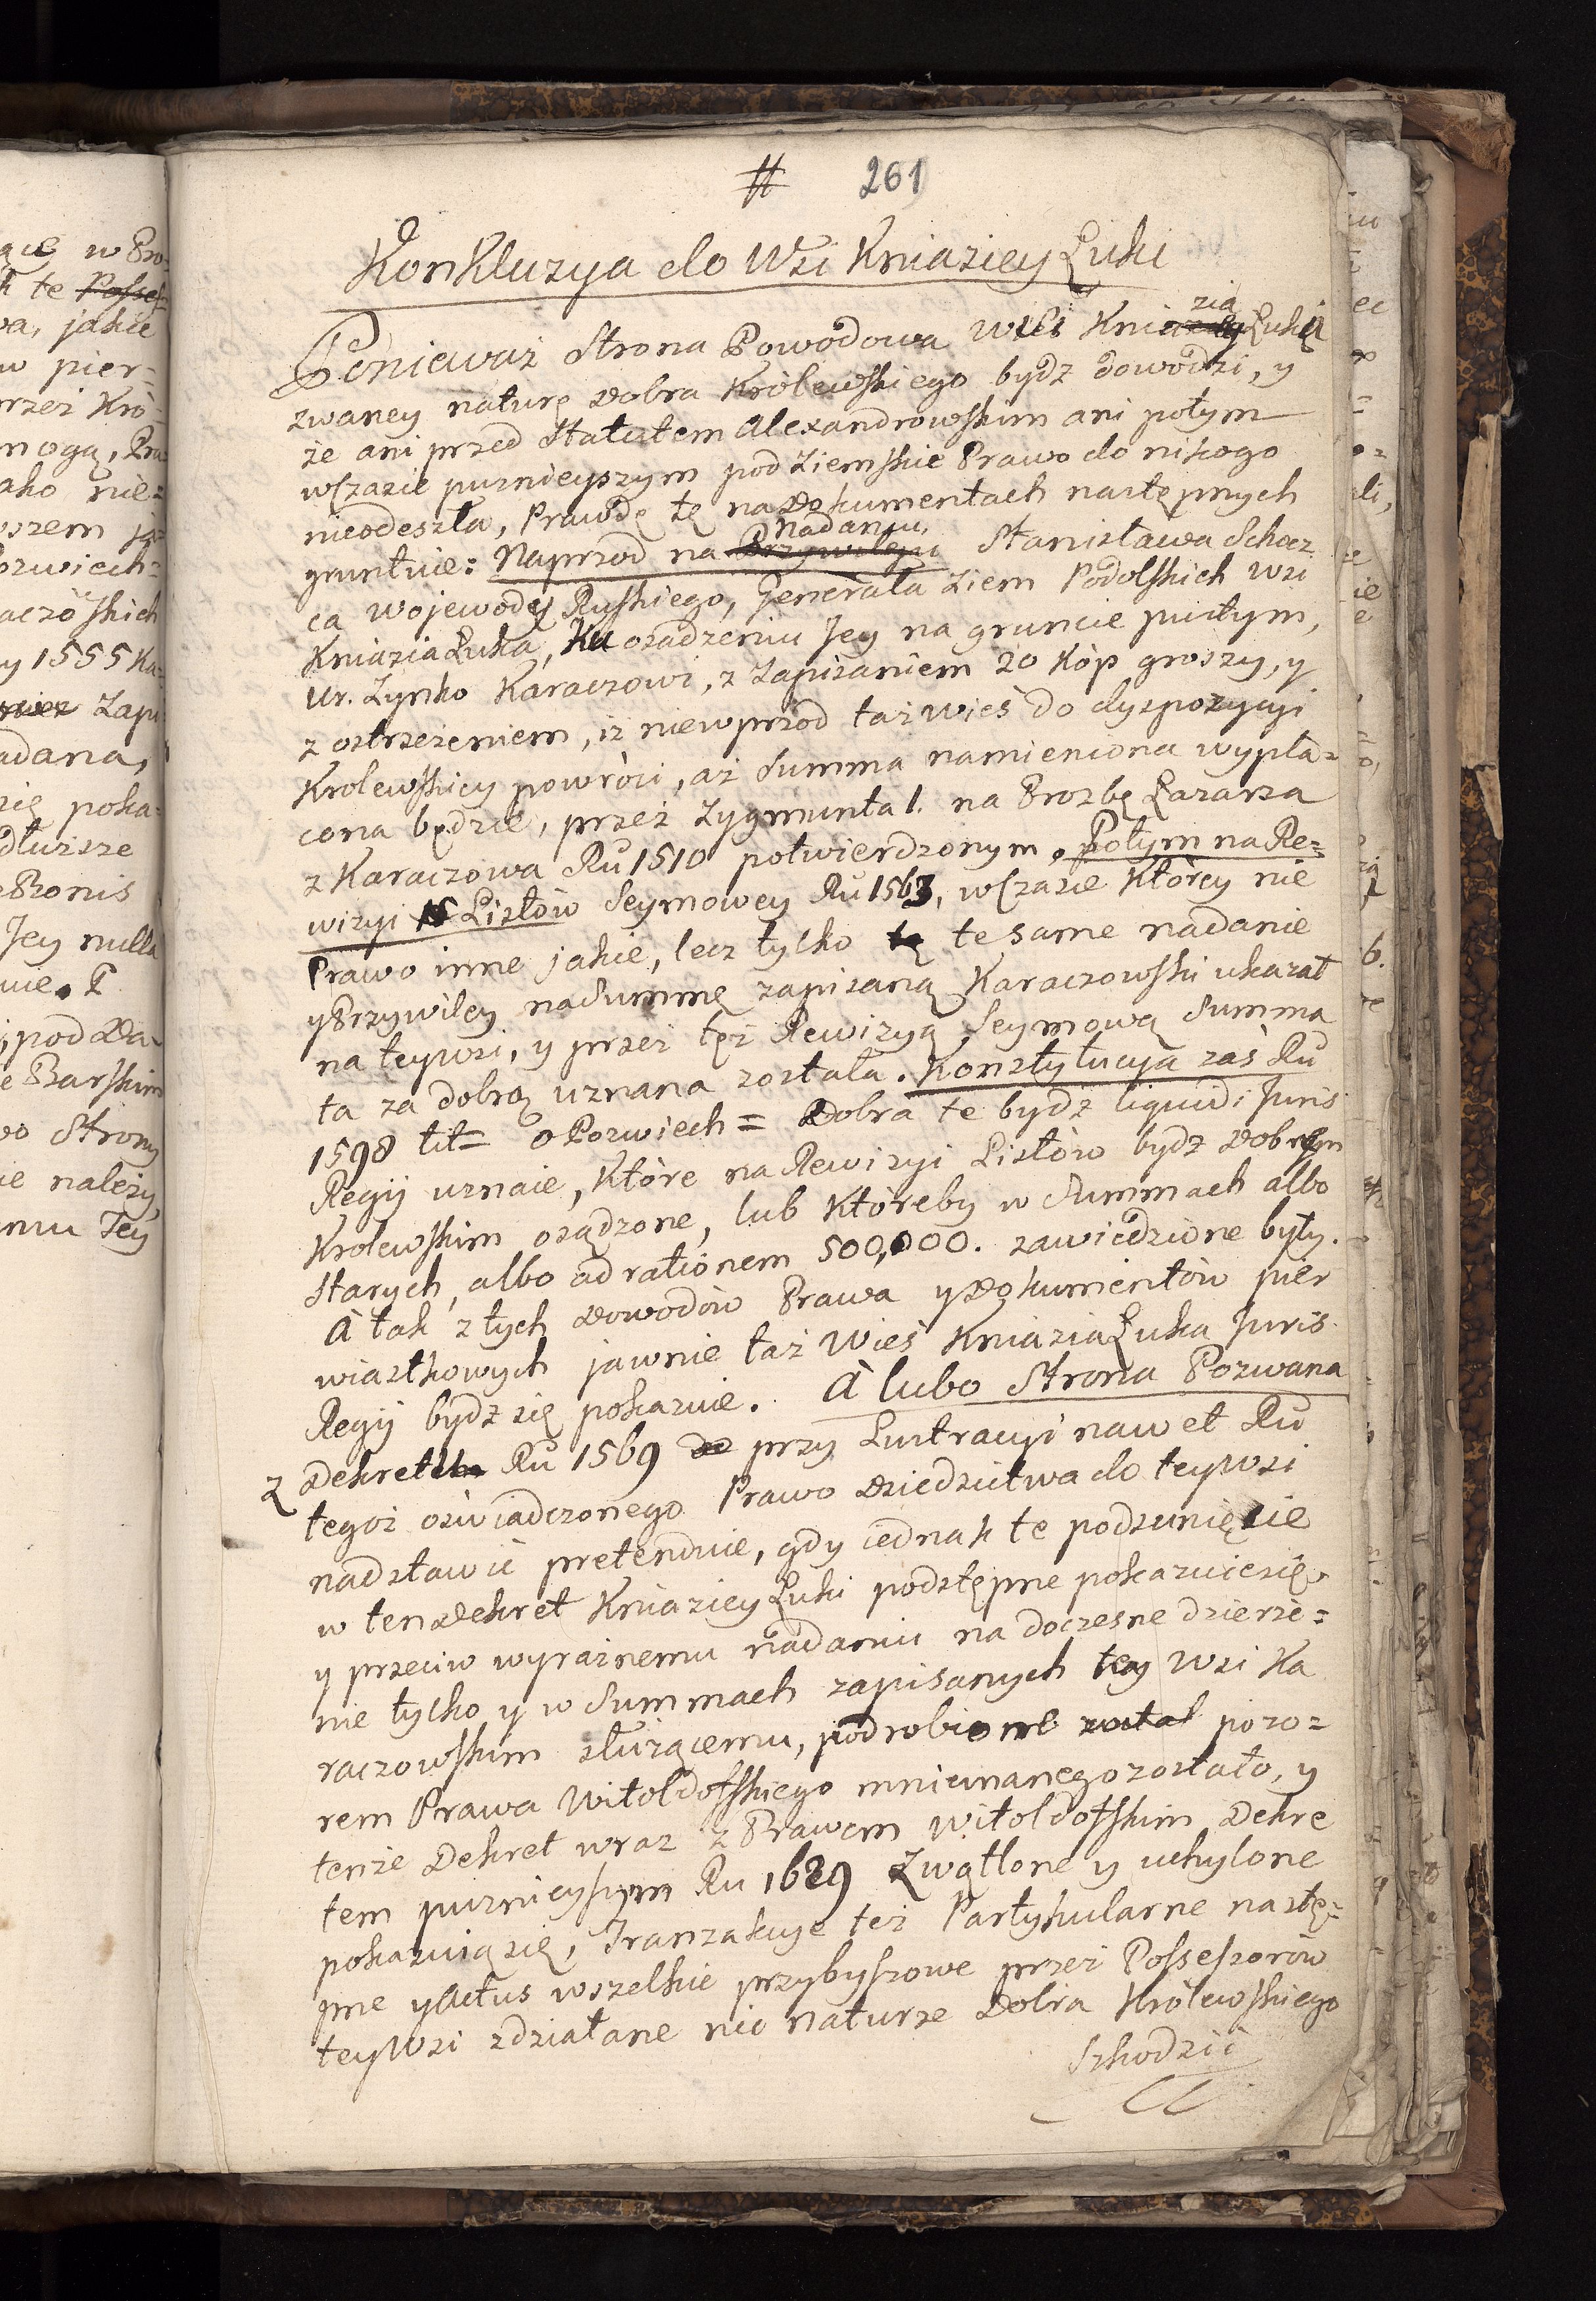 # 261
Konkluzya do Wsi Kniaziey Łuki
Ponieważ Strona Powodowa Wsi Kniazia Łuką
zwaney naturę Dobra Królewskiego bydz dowodzi, y
że ani przed Statutem Alexandrowskim ani potym
wczasie puznieyszym pod Ziemskie Prawo do nikogo
nieodeszła, Prawdę tę na Dokumentach następnych
gruntuie: Naprzod na Przywileju Nadaniu, Stanisława Chodcz
ca Wojewody Ruskiego, Generała Ziem Podolskich wsi
Kniazia Łuka, Ku osadzeniu Jey na gruncie pustym,
Ur. Zynko Karaczowi, z Zapisaniem 20 Kóp groszy, y
z ostrzeżeniem, iż niewprzod taż wieś do dyspozycyi
Krolewskiey powróci, aż Summa namieniona wypła=
cona będzie, przez Zygmunta I. na Prozbę Łazarza
z Karaczowa Ru 1510 potwierdzonym. Potym na Re=
wizyi Listów Seymowey Ru 1563, wczasie Którey nie
Prawo inne jakie, lecz tylko te same nadanie
y Przywiley nadummę zapisaną Karaczowski ukazał
na teywsi, y przez tęż Rewizyą Seymową Summa
ta za dobrą uznana została. Konstytucyja zaś Ru
1598 tit= o Pozwiech= Dobra te bydz liquidi Juris
Regij uznaie, Które na Rewizyi Listów bydz Dobrem
Krolewskim osądzone, lub Któreby w Summach albo
starych, albo ad rationem 500,000. zawiedzione były.
A tak z tych Dowodów Prawa y Dokumentów pier
wiastkowych jawnie taż Wieś Kniazia Łuka Juris
Regij bydz się pokazuie. A lubo Strona Pozwana
z Dekretu Ru 1569 przy Lustracyi nawet Ru
tegoż oświadczonego Prawo Dziedzictwa do teyWsi
nadstawić pretenduie, gdy iednak te podsunięcie
w ten Dekret Kniaziey Łuki podstępne pokazuiesię
y przeciw wyraźnemu nadaniu na doczesne dzierże=
nie tylko y w Summach zapisanych tey Wsi Ka
raczowskim służącemu, podrobione został pozo=
rem Prawa Witoldofskiego mniemanego zostało, y
tenże Dekret wraz z Prawem Witoldofskim Dekre
tem puznieyszym Ru 1629 Zwątlone y uchylone
pokazuiąsię, Tranzakcye też Partykularne nastę=
pne y Actus wszelkie przybyszowe przez Possessorów
teyWsi zdziałane nic naturze Dobra Królewskiego
Szkodzić